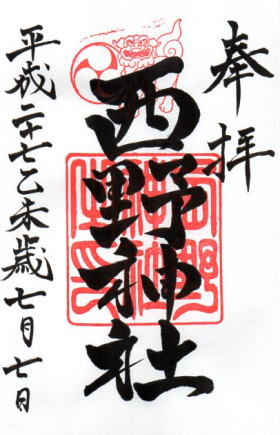 奉拝
西野神社
平成二十七乙未歳七月七日